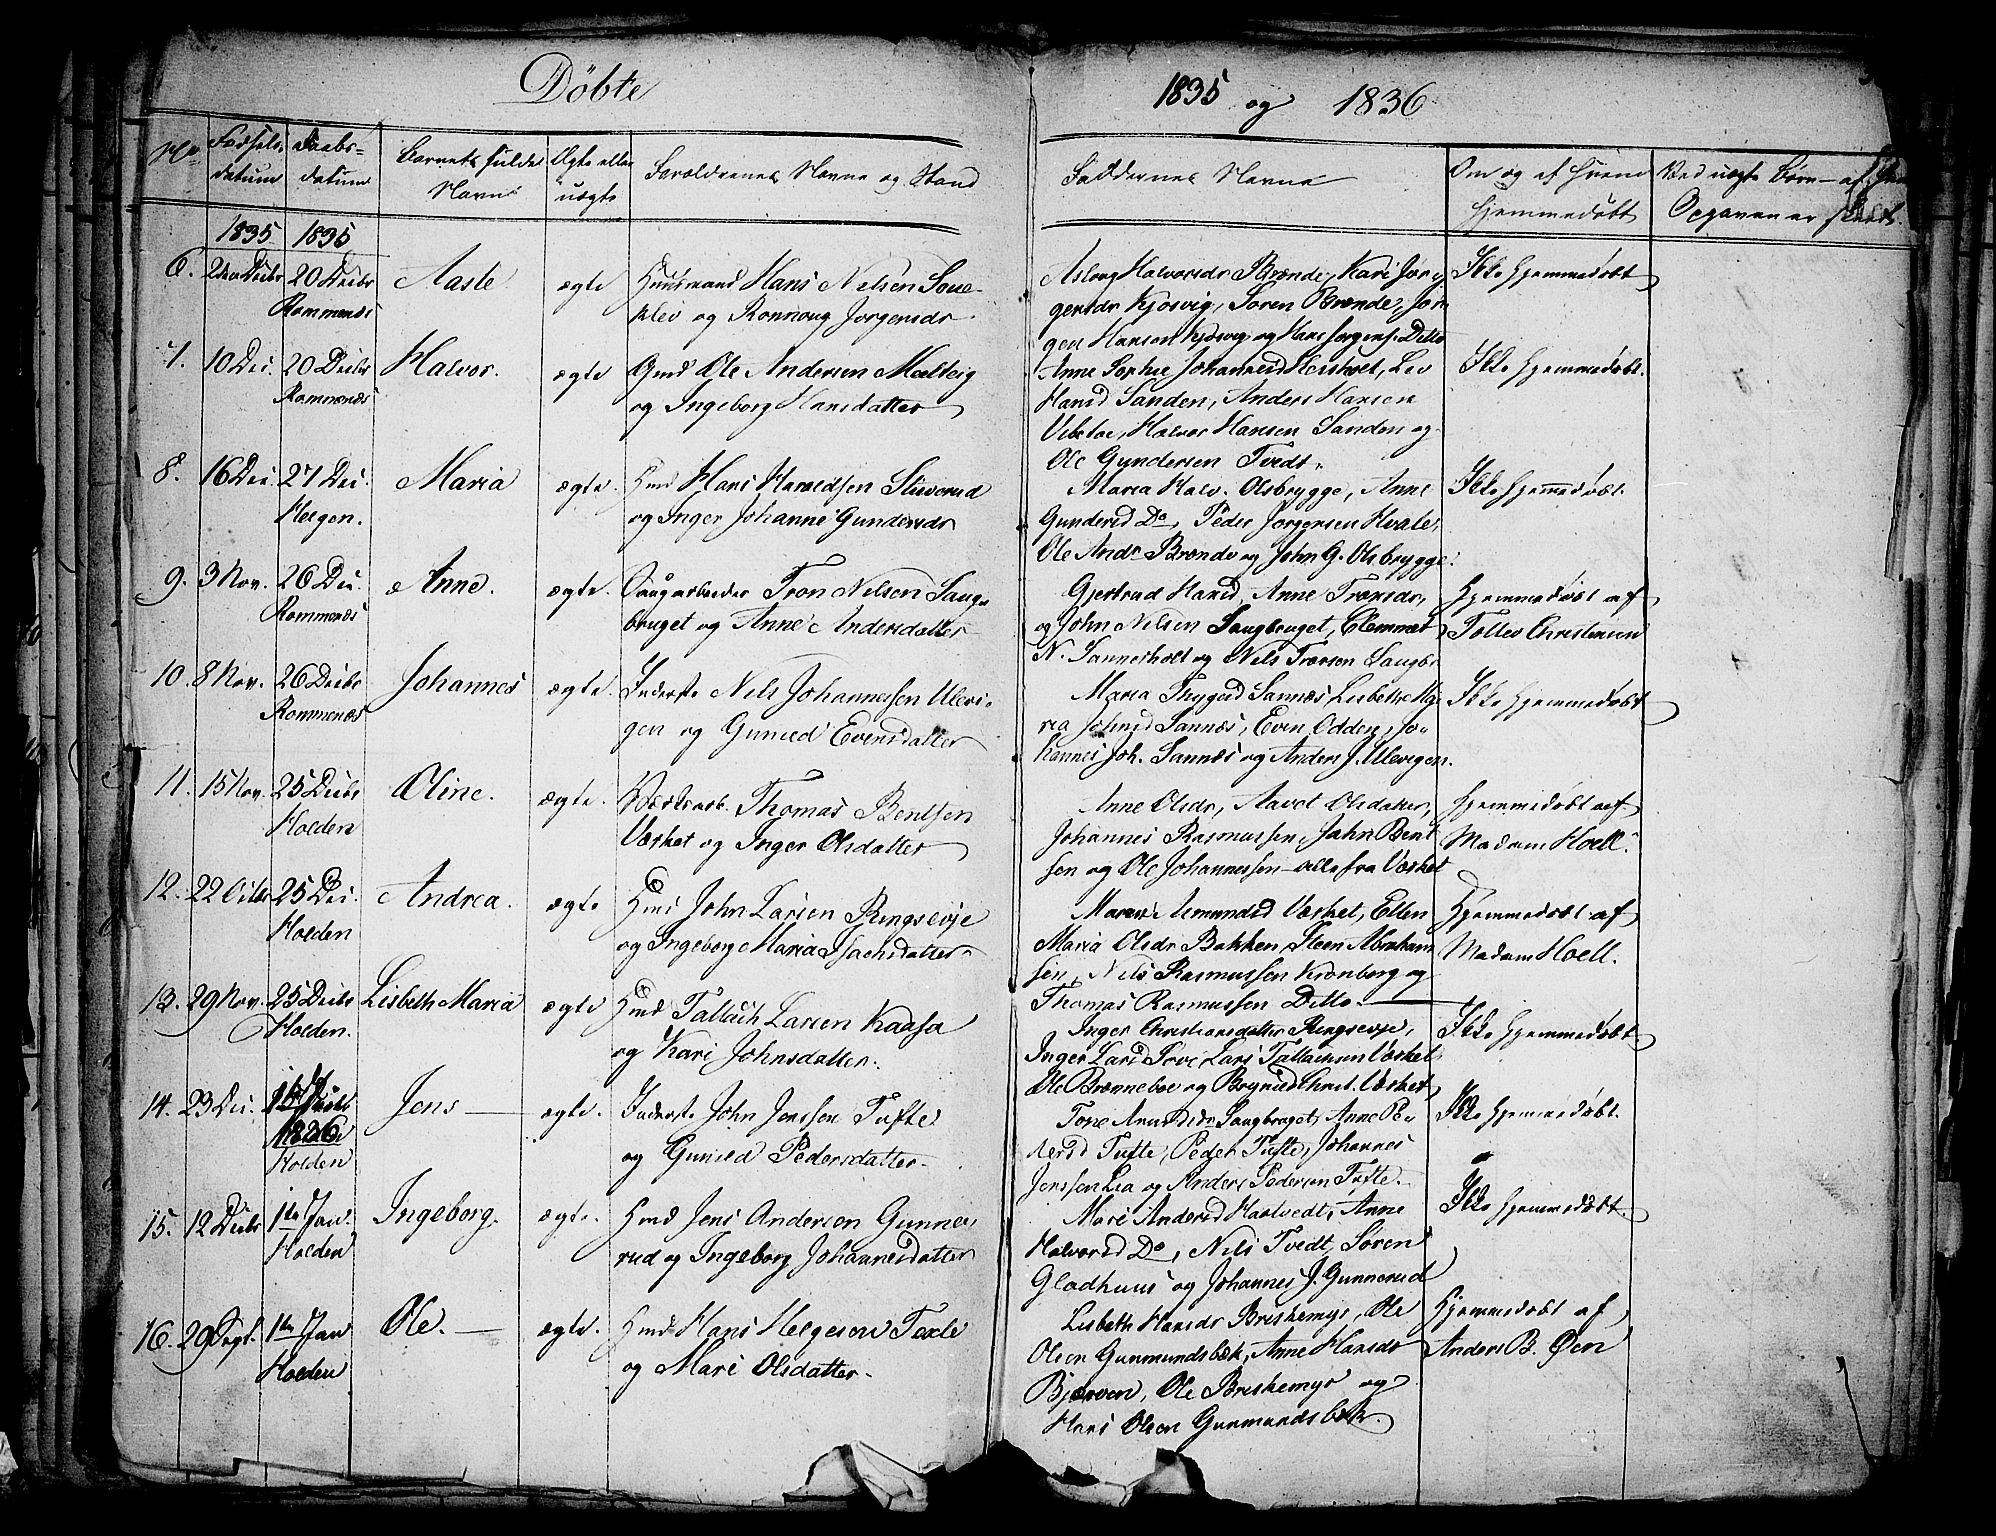 Døbte
1835 og 1836
No
Fødsels-
datum
Daabs-
datum
Barnets fulde
Navn
Ægte eller
uægte
Forældrenes Navne og Stand
Faddernes Navne
Om og af hvem
hjemmedøbt
Ved uægte Børn – af
Opgaven er skeet.
1835 1835
6. 20 Decbr Aasle ægte Huusmand Hans Nielsen Soue-
Rommenæs klev og Ronnoug Jorgensdr
Asloug Halvorsdr Brænde, Kari Jør-
gensdr Kjosvig, Søren Brænde, Jør-
gen Hansen Kjosvig og Hans Jorgens. Ditto
Ikke hjemmedøbt
7. 10 Dec. 20 Decbr Halvor. ægte Gmd Ole Andersen Melteig
Rommenæs og Ingeborg Hansdatter
Anne Sophie Johannesd
Hansd Sanden, Anders Hansen
Vibetoe, Halvor Hansen Sanden og
Ole Gundersen Tvedt.
Ikke hjemmedøbt.
8. 16 Dec. 27 Dec. Maria ægte. Hmd Hans Haraldsen
Helgen. og Inger Johanne Gundersdr
Maria Halv. Olsbrygge, Anne
Gundersd Do, Peder Jørgensen Hvale,
Ole Andr Brænde og John G. Olsbrygge.
Ikke hjemmedøbt.
9. 3 Nov. 26 Dec. Anne. ægte. Saugarbeider Tron Nilsen Saug-
Rommenæs bruget og Anne Andersdatter
Gjertrud Hansd, Anne Tronsdr,
og John Nilsen Saugbruget, Clemmet
N. Sannerholt og Nils Tronsen Saugbr
Hjemmedøbt af
Tollev Christensen
10. 8 Nov. 26 Decbr Johannes ægte. Inderste Nils Johannessen Ulevi-
Rommenæs gen og Gunild Evensdatter
Maria Sannæs, Lisbeth Ma-
ria Johnsd Sannæs, Even Odden, Jo-
hannes Joh. Sannæs og Anders J. Ulevigen.
Ikke hjemmedøbt
11. 15 Nov. 25 Decbr Oline. ægte. Værksarb. Thomas Bentsen
Holden Værket og Inger Olsdatter
Anne Olsdr, Aavet Olsdatter,
Johannes Rasmussen, John Bent-
sen og Ole Johannessen – alle fra Værket
Hjemmedøbt af
Madam Hoell.
12. 22 Octbr 25 Dec. Andrea. ægte Hmd John Larsen Ringsevje
Holden og Ingeborg Maria Isachsdatter
Maren Amundsd Værket, Ellen
Maria Olsdr Bakken, Steen Abraham-
sen, Nils Rasmussen Kronborg og
Thomas Rasmussen Ditto.
Hjemmedøbt af
Madam Hoell.
13. 29 Nov. 25 Decbr Lisbeth Maria ægte Hmd Tallach Larsen Kaasa
Holden. og Kari Johnsdatter.
Inger Christiansdatter Ringsevje,
Inger Larsd Tove Lars Tallachsen Værket
Ole Brænneboe og Christ. Værket
Ikke hjemmedøbt
14. 23 Dec. Jens – ægte. Inderste John Jenssen Tufte
1836
Holden og Gunild Pedersdatter.
Tone Amundsdr Saugbruget, Anne Pe-
dersd Tufte, Peder Tufte, Johannes
Jenssen Lia og Anders Pedersen Tufte.
Ikke hjemmedøbt.
15. 12 Decbr 1te Jan. Ingeborg. ægte. Hmd Jens Andersen Gunne-
Holden rud og Ingeborg Johannesdatter
Mari Andersd Haatvedt, Anne
Halvorsd Do, Nils Tvedt, Søren
Gladhuus og Johannes J. Gunnerud
Ikke hjemmedøbt.
16. 29 Sept. 1te Jan Ole. – ægte. Hmd Hans Helgesen Texle
Holden og Mari Olsdatter.
Lisbeth Hansdr Briskemyr, Ole
Olsen Gunmundsbæk, Anne Hansdr
Bjærven, Ole Briskemyr og
Hans Olsen Gunmundsbæk.
Hjemmedøbt af
Anders B. Øen